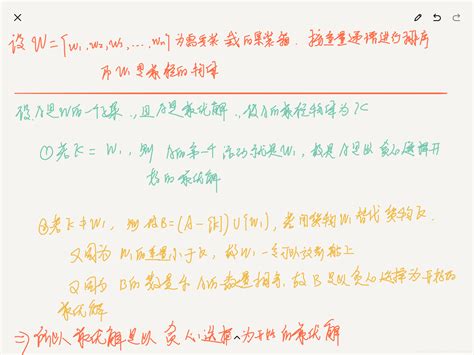 设 W = {w₁, w₂, w₃, ..., wₙ} 为需要装载的集装箱, 按重量递增进行排序
而 W₁ 是最轻的物品
设 A 是 W 的一个子集, 且 A 是最优解, 设 A 的最轻物品为 K
① 若 K = W₁, 则 A 的第一个活动就是 W₁, 故是 A 是以贪心选择开
始的最优解
② 若 K ≠ W₁, 则设 B = (A - {k}) ∪ {W₁}, 若用货物 W₁ 替代货物 k.
又因为 W₁ 的重量小于 k, 故 W₁ 一定可以放到船上
又因为 B 的数量和 A 的数量相等, 故 B 是以贪心选择为开始的
最优解
⇒ 所以最优解是以贪心选择为开始的最优解